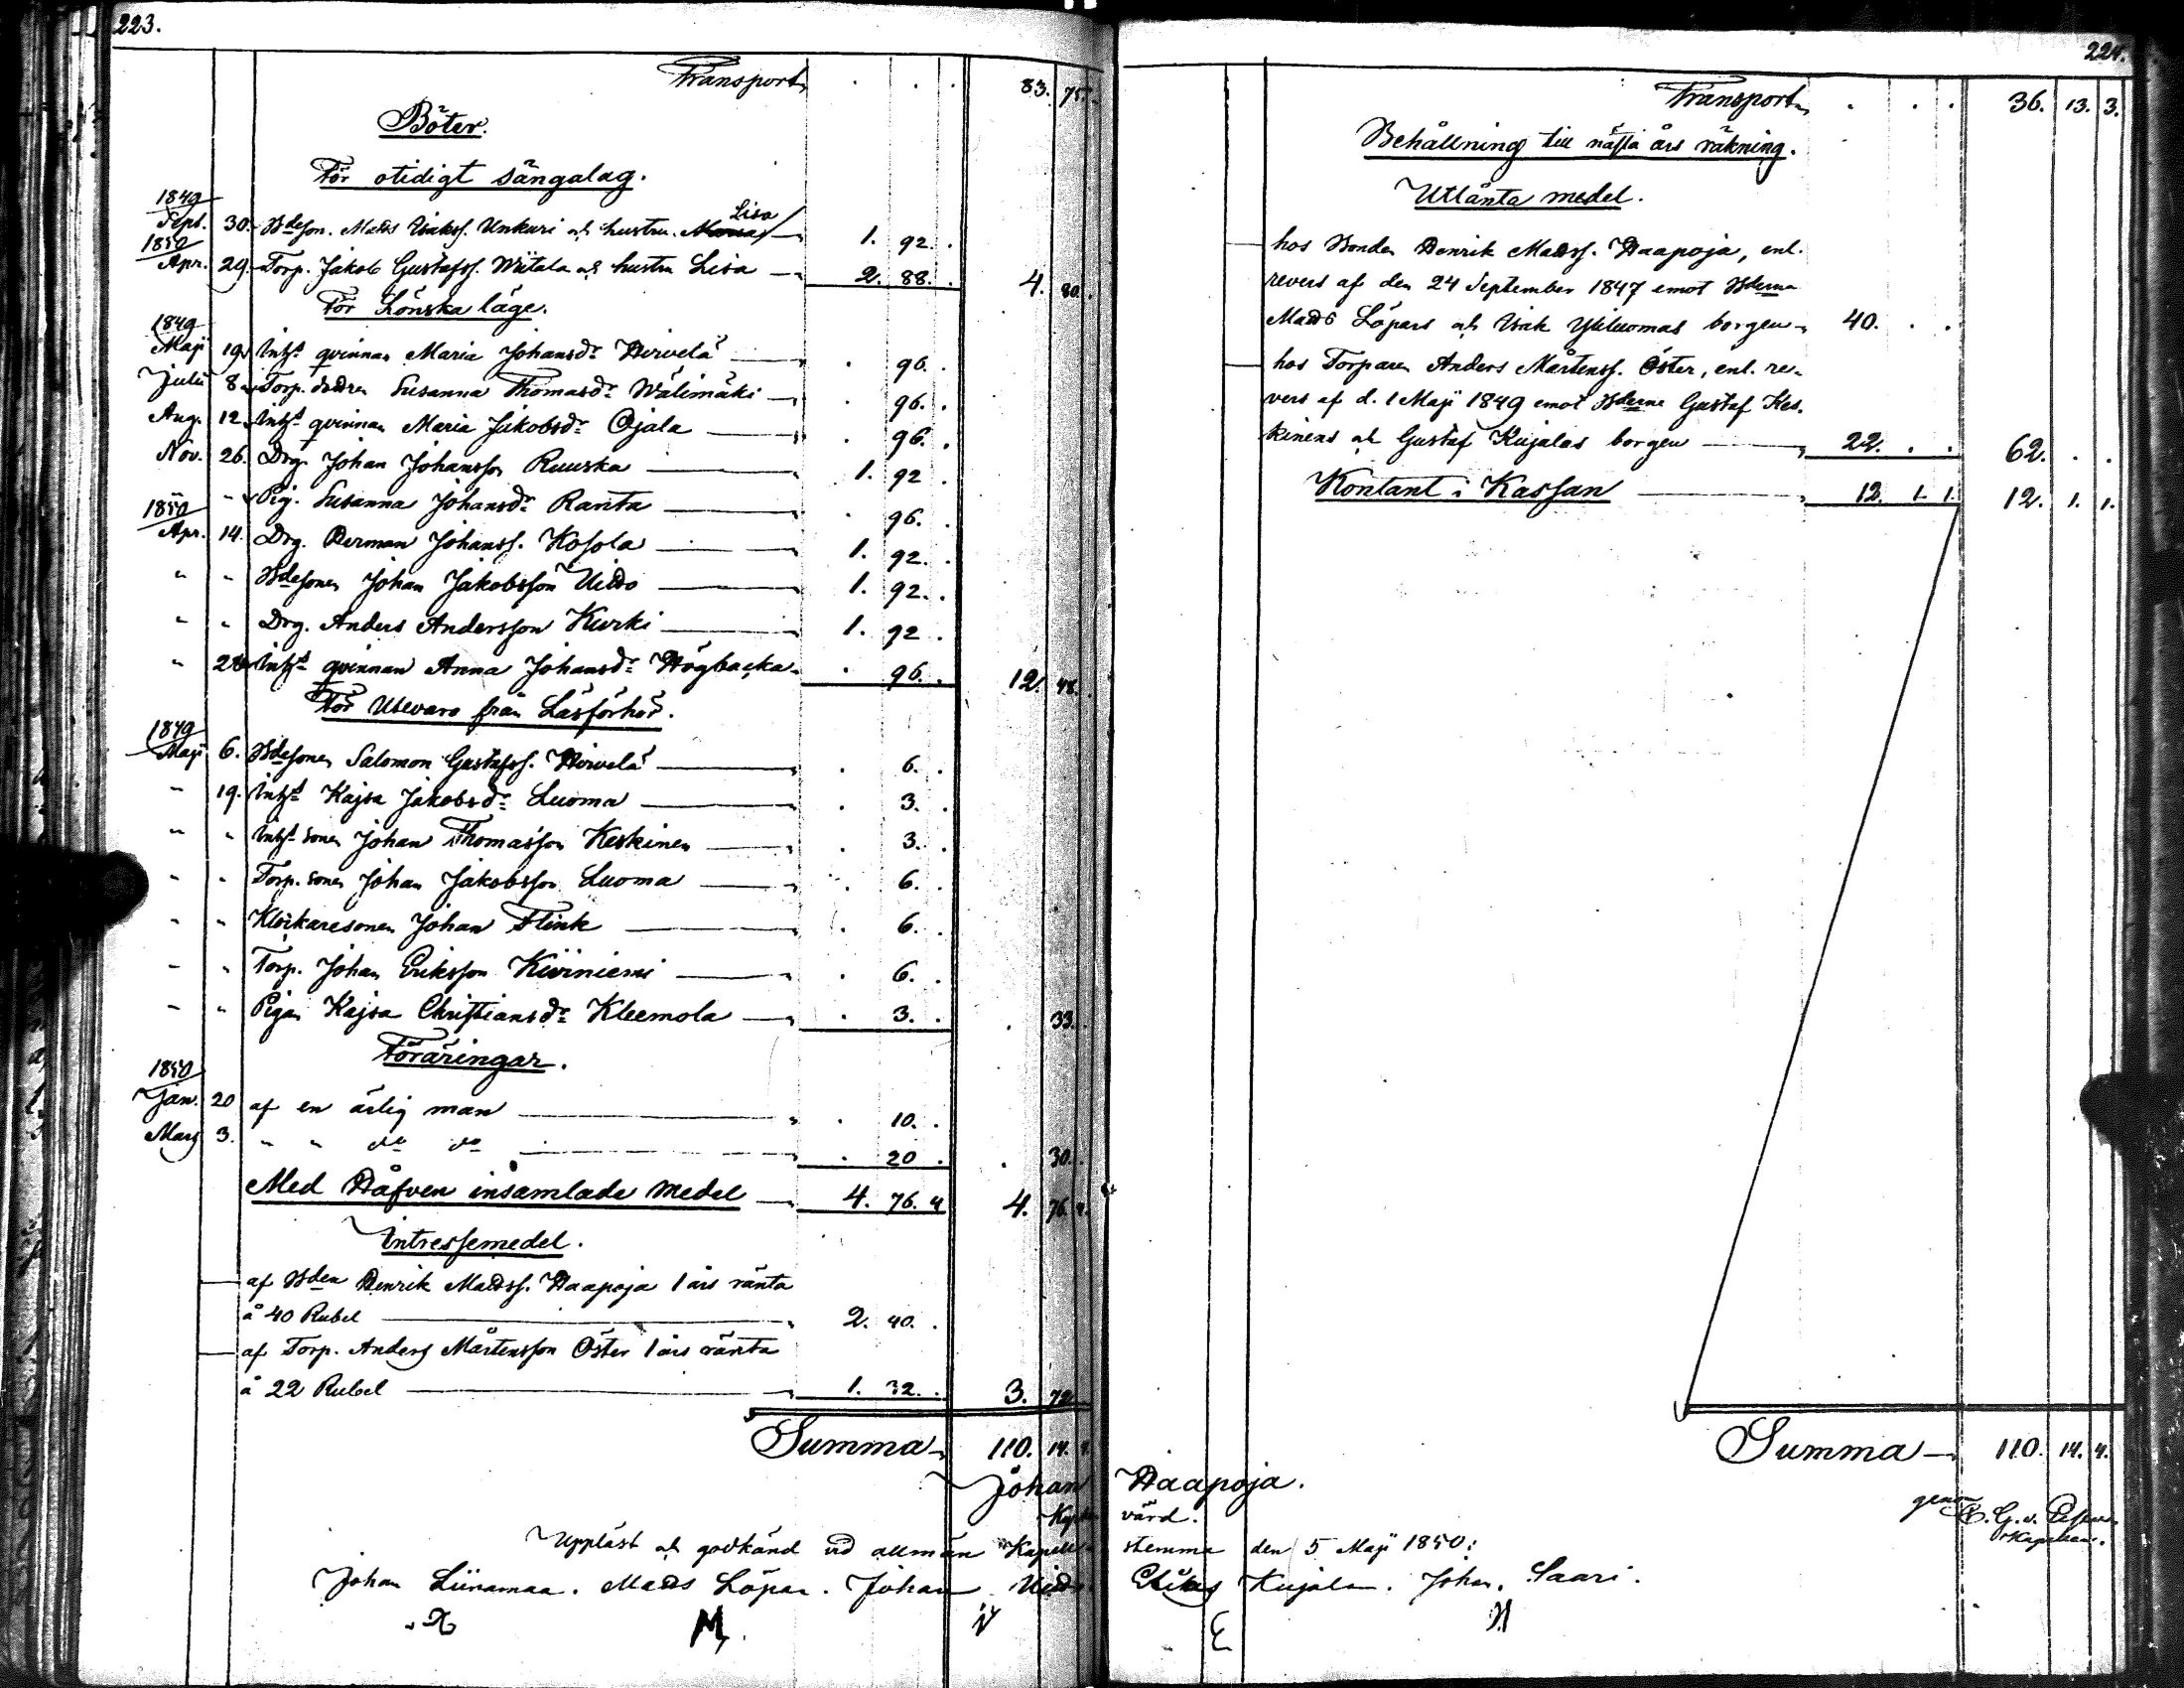 223.
Transport . . . 83. 75.
Böter.
För otidigt sängalag.
1849
Sept. 30. Bdeson. Matts Isakss. Unkuri och hustru Maria Lisa 1. 92. .
1850
Apr. 29. Torp. Jakob Gustafss. Wiitala och hustru Lisa 2. 88. . 4. 80. .
För Lönska läge.
1849
Maji 19. Inhs qvinnan Maria Johansdr Hirvelä . 96. .
Julii 8. Torp. dottren Susanna Thomasdr Wälimäki . 96. .
Aug. 12. Inhs qvinnan Maria Jakobsdr Ojala . 96. .
Nov. 26. Drg. Johan Johansson Ruuska 1. 92 .
" " Pig. Susanna Johansdr Ranta . 96. .
1850
Apr. 14. Drg. Herman Johanss. Kosola 1. 92. .
" " Bdesonen Johan Jakobsson Uitto 1. 92. .
" " Drg. Anders Andersson Kurki 1. 92 .
" 28 Inhs qvinnan Anna Johansdr Högbacka . 96. . 12. 48. .
För Utevaro från Läsförhör.
1849
Maji 6. Bdesonen Salomon Gustafss. Hirvelä . 6. .
" 19. Inhs Kajsa Jakobsdr Luoma . 3. .
" " Inhs sonen Johan Thomasson Keskinen . 3. .
" " Torp. sonen Johan Jakobsson Luoma . 6. .
" " Klockaresonen Johan Flink . 6. .
" " Torp. Johan Eriksson Kiviniemi . 6. .
" " Pigan Kajsa Christiansdr Kleemola . 3. . . 33. .
Föräringar.
1850
Jan. 20 af en ärlig man . 10. .
Mars 3. " " do do . 20 . . 30. .
Med Håfven insamlade medel 4. 76. 4 4. 76. 4.
Intressemedel.
af Bden Henrik Mattss. Haapoja 1 års ränta
å 40 Rubel 2. 40. .
af Torp. Anders Mårtensson Öster 1 års ränta
å 22 Rubel 1. 32. . 3. 72
Summa 110. 14. 4.
224.
Transport . . . 36. 13. 3.
Behållning till nästa års räkning.
Utlånta medel.
hos Bonden Henrik Mattss. Haapoja, enl.
revers af den 24 September 1847 emot Bderna
Matts Löpars och Isak Yliluomas borgen 40. . .
hos Torparen Anders Mårtenss. Öster, enl. re-
vers af d. 1 Maji 1849 emot Bderne Gustaf Kes-
kinens och Gustaf Kujalas borgen 22. . . 62. . .
Kontant i Kassan 12. 1. 1. 12. 1. 1.
Summa 110. 14. 4.
Johan Haapoja.
värd.
genom
Uppläst och godkänd vid allmän Kapell stemma den 5 Maji 1850:
Johan Liinamaa. Matts Löpar. Johan Uitto. Elias Kujala. Johan Saari.
M